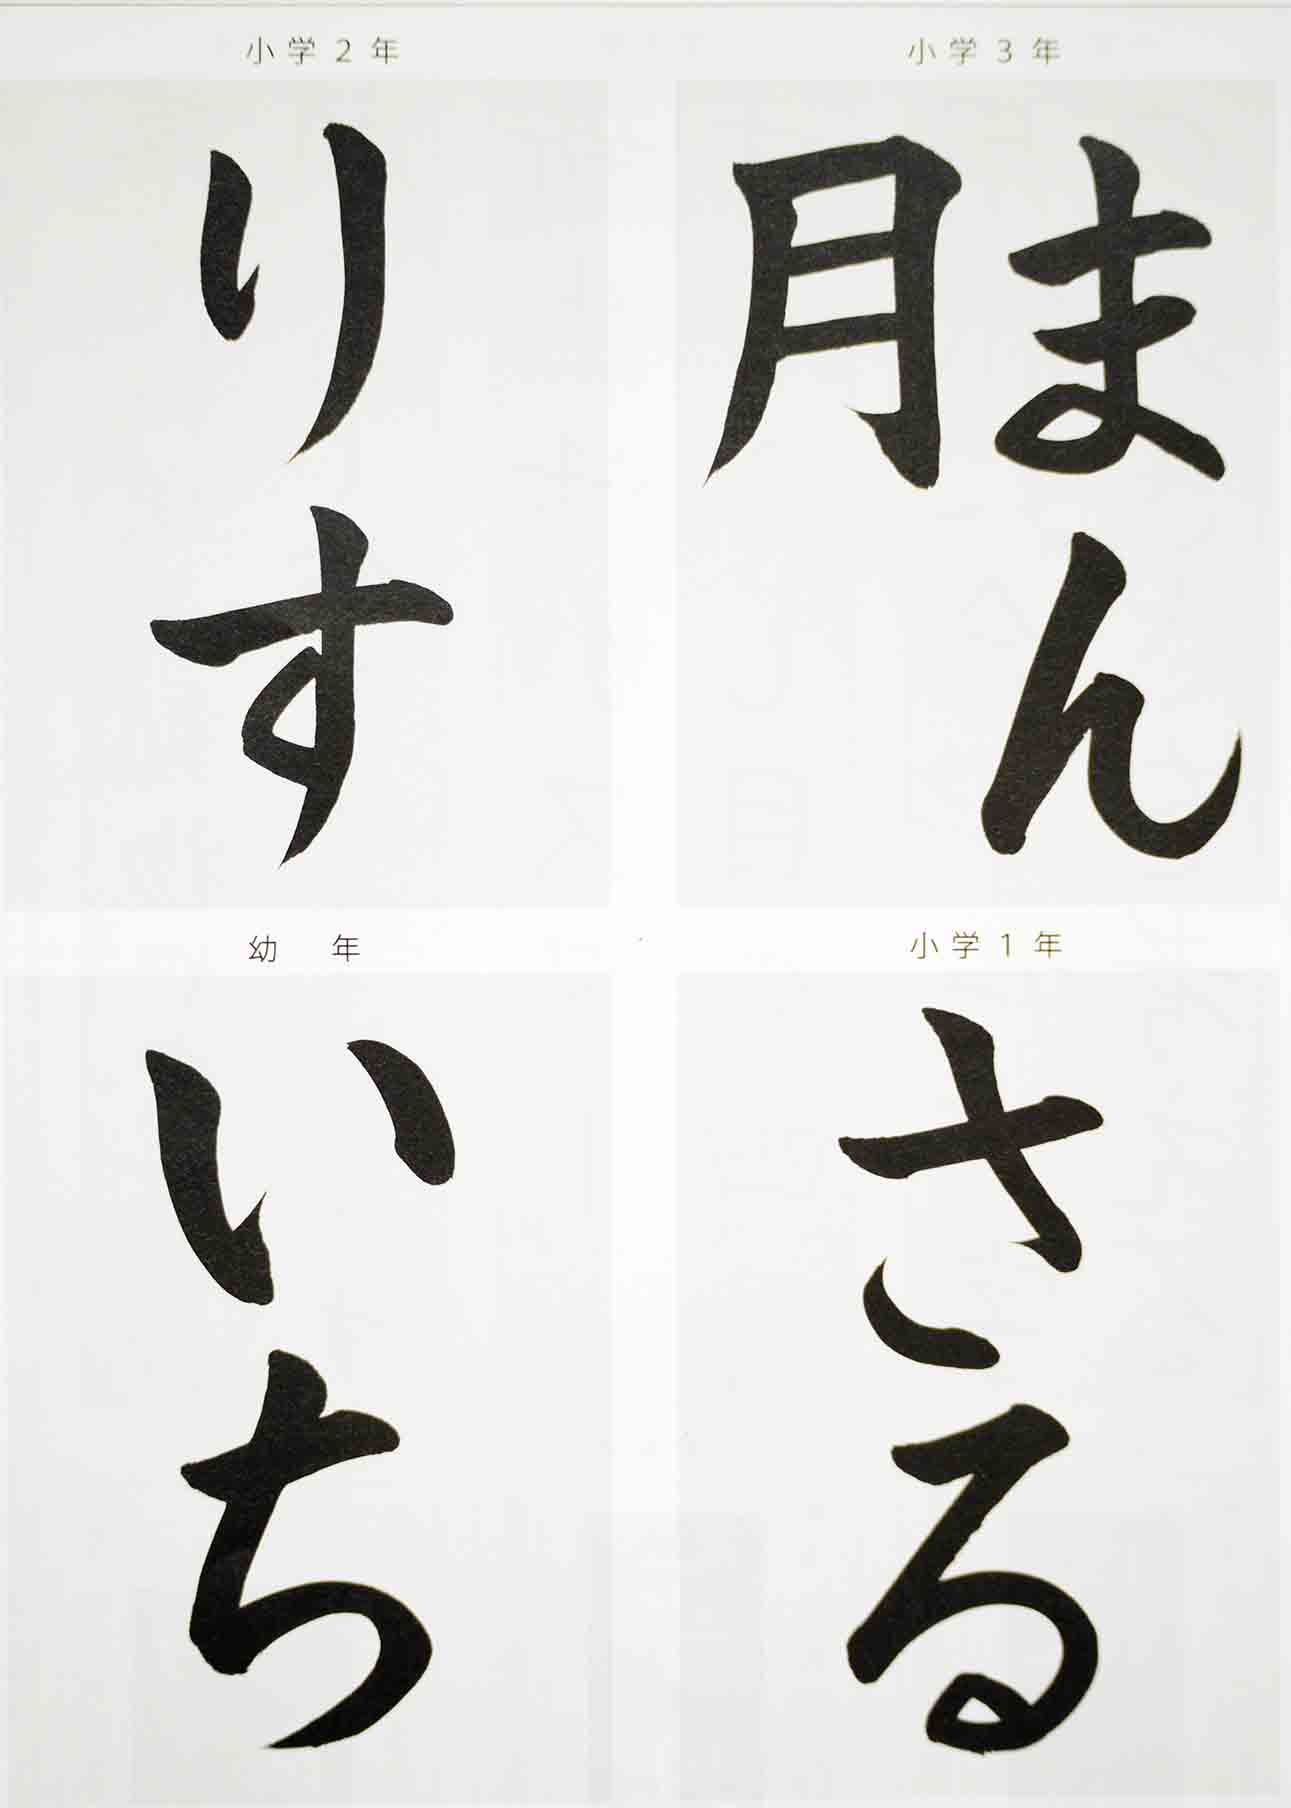 小学3年
まん
月
小学2年
りす
小学1年
さる
幼年
いち